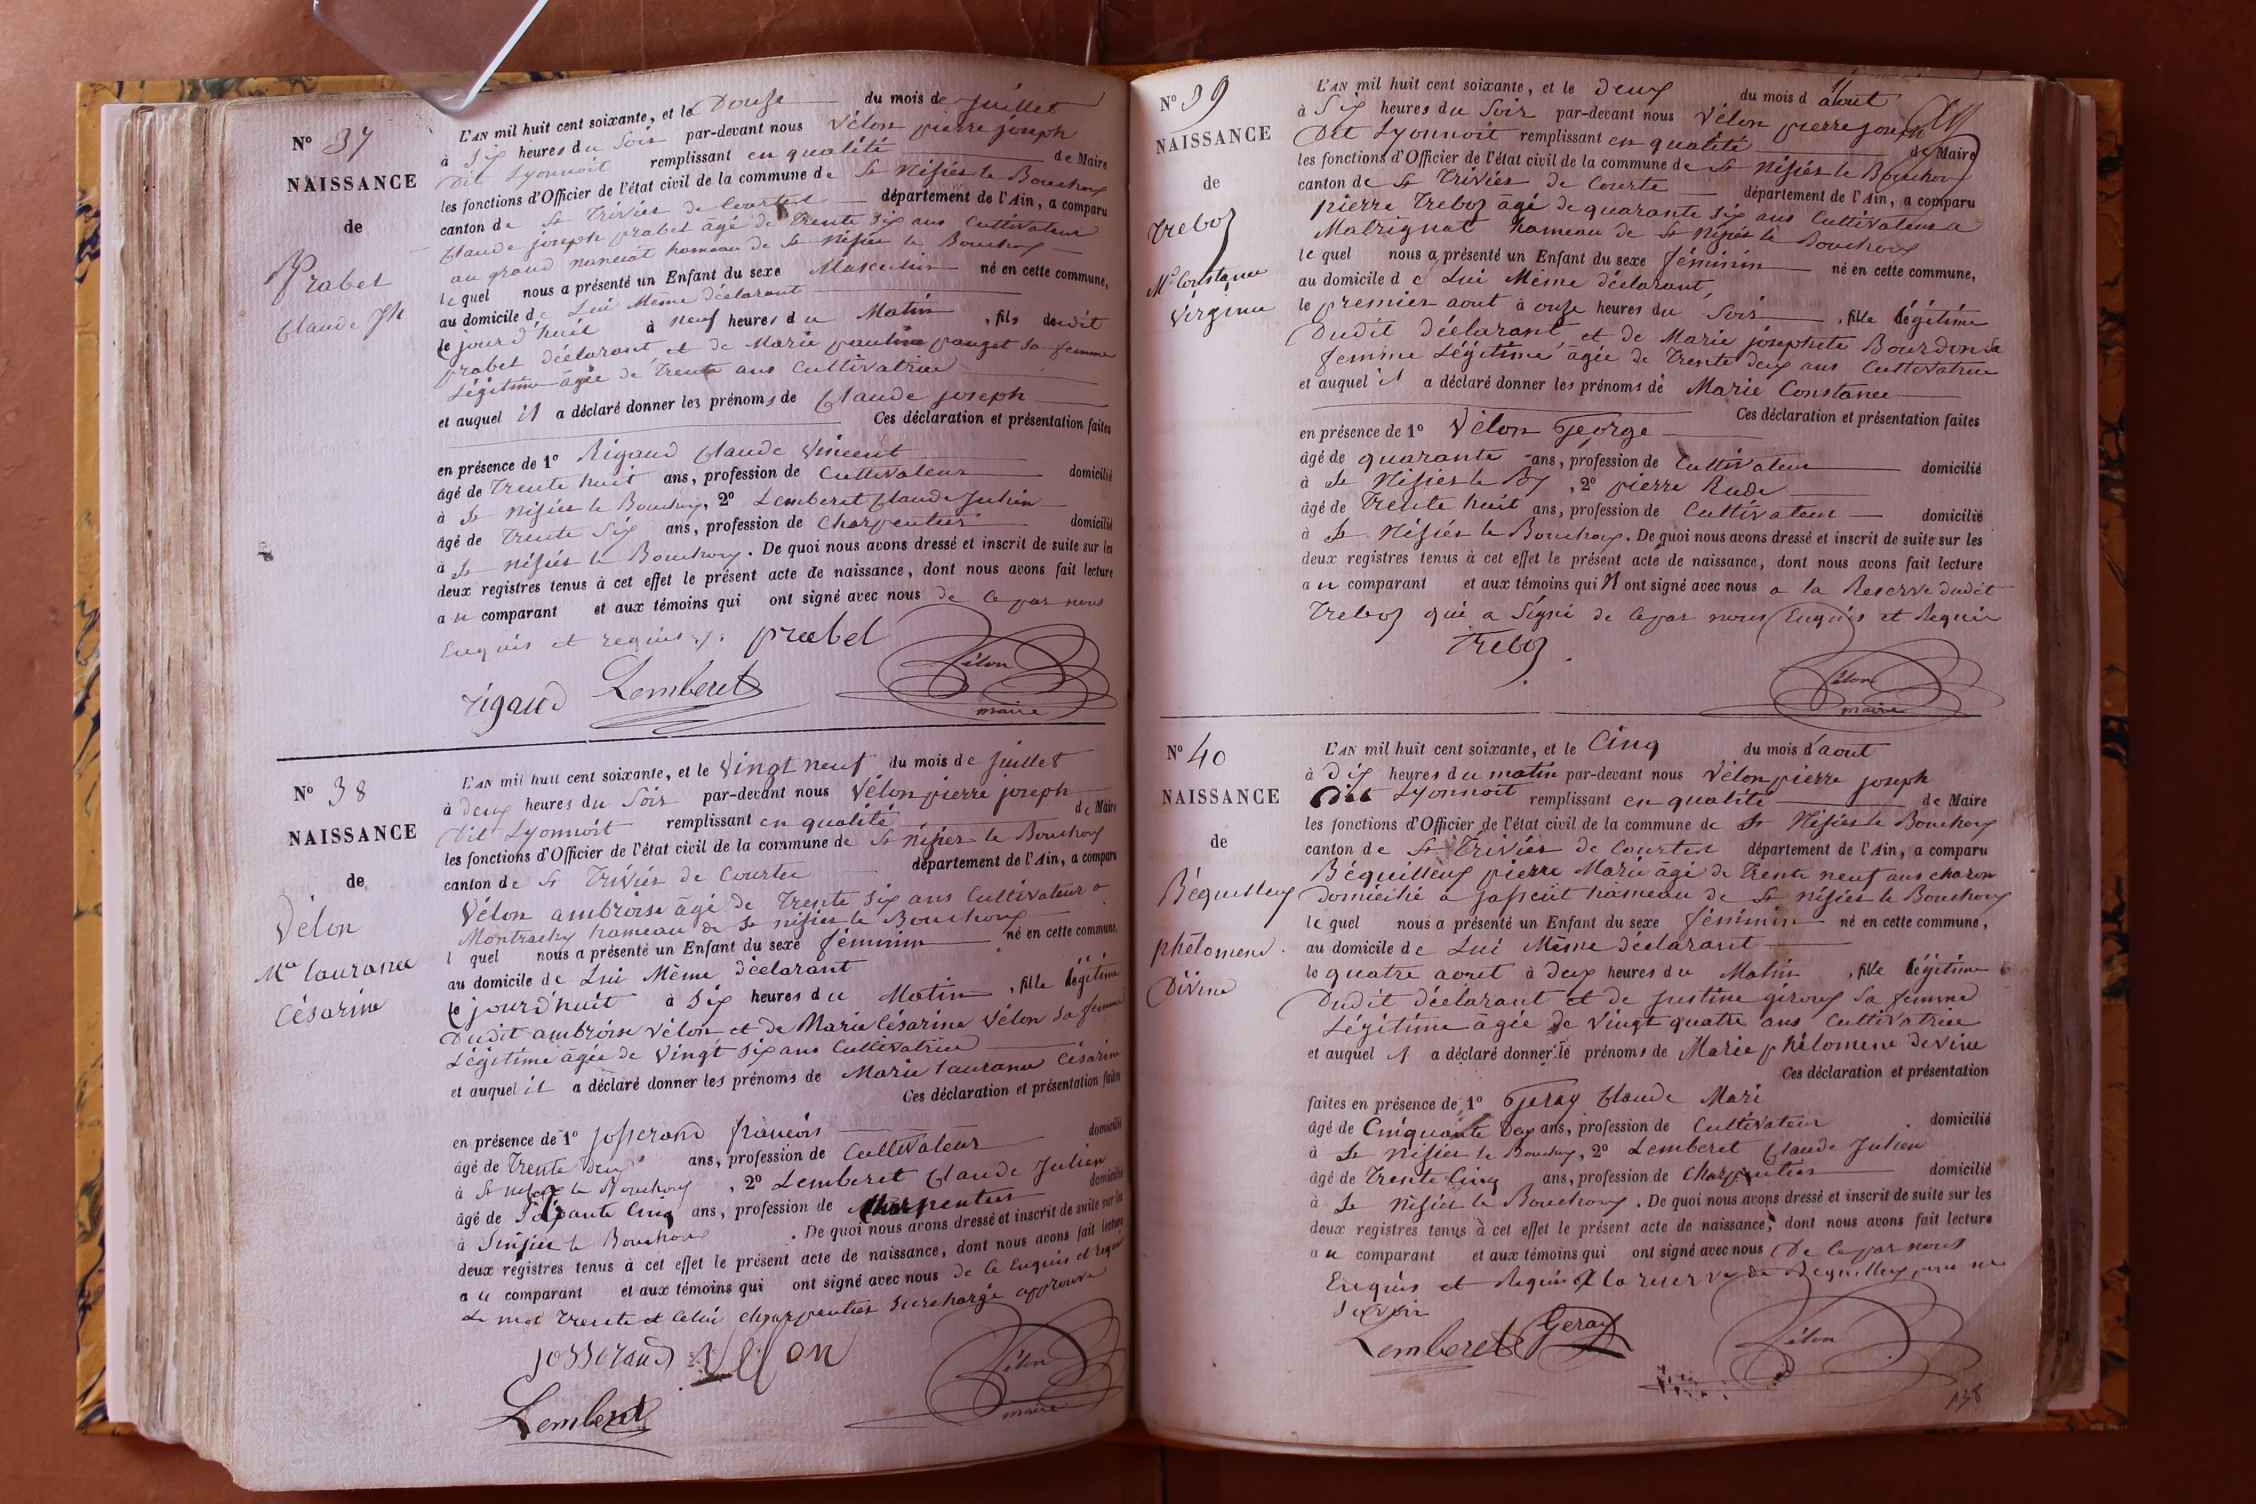 N° 37
NAISSANCE
de
Prabel
Claude Jh
L'AN mil huit cent soixante, et le Douze du mois de Juillet
à Six heures du Soir par-devant nous Vélon pierre joseph
Dit Lyonnoit remplissant en qualité de Maire
les fonctions d'Officier de l'état civil de la commune de St Nisiés le Bouchoux
canton de St Triviés de Courtes département de l'Ain, a comparu
Claude joseph prabel âgé de Trente Six ans Cultivateur
au grand hameau de St Nisiés le Bouchoux
le quel nous a présenté un Enfant du sexe Masculin né en cette commune,
au domicile de Lui Même déclarant
le jour d'huit à neuf heures du Matin, fils dudit
prabel déclarant et de Marie pauline pauget Sa femme
Légitime âgée de Trente ans Cultivatrice
et auquel il a déclaré donner les prénoms de Claude joseph
Ces déclaration et présentation faites
en présence de 1° Rigaud Claude Vincent
âgé de Trente huit ans, profession de Cultivateur domicilié
à St Nisiés le Bouchoux, 2° Lemberet Claude Julien
âgé de Trente Six ans, profession de Charpentier domicilié
à St Nisiés le Bouchoux. De quoi nous avons dressé et inscrit de suite sur les
deux registres tenus à cet effet le présent acte de naissance, dont nous avons fait lecture
au comparant et aux témoins qui ont signé avec nous de ce par nous
Enquis et requis prabel
rigaud Lemberet Vélon
maire
N° 38
NAISSANCE
de
Vélon
Mie lauranee
Césarine
L'AN mil huit cent soixante, et le Vingt neuf du mois de Juillet
à deux heures du Soir par-devant nous Vélon pierre joseph
Dit Lyonnoit remplissant en qualité de Maire
les fonctions d'Officier de l'état civil de la commune de St Nisiés le Bouchoux
canton de St Triviés de Courtes département de l'Ain, a comparu
Vélon ambroise âgé de Trente Six ans Cultivateur a
Montrachy hameau de St nisiés le Bouchoux
l quel nous a présenté un Enfant du sexe féminin né en cette commune,
au domicile de Lui Même déclarant
le jourd'huit à Six heures du Matin, fille légitime
Dudit ambroise Vélon et de Marie Césarine Vélon Sa femme
Légitime âgée de Vingt Six ans Cultivatrice
et auquel il a déclaré donner les prénoms de Marie lauranee Césarine
Ces déclaration et présentation faites
en présence de 1° josserand françois
âgé de Trente deux ans, profession de Cultivateur domicilié
à St nisiés le Bouchoux, 2° Lemberet Claude Julien
âgé de Cinq ans, profession de Charpentier domicilié
à St nisiés le Bouchoux. De quoi nous avons dressé et inscrit de suite sur les
deux registres tenus à cet effet le présent acte de naissance, dont nous avons fait lecture
au comparant et aux témoins qui ont signé avec nous de ce Enquis et requis
Le mot Trente et celui charpentier Surchargé approuvé
josserand Vélon
Lemberet Vélon
maire
N° 39
NAISSANCE
de
Treboz
Mie Constance
Virginie
L'AN mil huit cent soixante, et le deux du mois d'aout
à Six heures du Soir par-devant nous Vélon pierre joseph
Dit Lyonnoit remplissant en qualité de Maire
les fonctions d'Officier de l'état civil de la commune de St Nisiés le Bouchoux
canton de St Triviés de Courtes département de l'Ain, a comparu
pierre Treboz âgé de quarante Six ans Cultivateur a
Malrignat hameau de St Nisiés le Bouchoux
le quel nous a présenté un Enfant du sexe féminin né en cette commune,
au domicile de Lui Même déclarant,
le premier aout à onze heures du Soir, fille légitime
Dudit déclarant et de Marie josephte Bourdon Sa
femme Légitime âgée de Trente deux ans Cultivatrice
et auquel il a déclaré donner les prénoms de Marie Constance
Ces déclaration et présentation faites
en présence de 1° Vélon George
âgé de quarante ans, profession de Cultivateur domicilié
à St Nisiés le Bx, 2° pierre Rude
âgé de Trente huit ans, profession de Cultivateur domicilié
à St Nisiés le Bouchoux. De quoi nous avons dressé et inscrit de suite sur les
deux registres tenus à cet effet le présent acte de naissance, dont nous avons fait lecture
au comparant et aux témoins qui n ont signé avec nous a la Reserve dudit
Treboz qui a Signé de ce par nous Enquis et Requis
Treboz
Vélon
maire
N° 40
NAISSANCE
de
Béquilleux
phélomene
Divine
L'AN mil huit cent soixante, et le Cinq du mois d'aout
à Dix heures du matin par-devant nous Vélon pierre joseph
Dit Lyonnoit remplissant en qualité de Maire
les fonctions d'Officier de l'état civil de la commune de St Nisiés le Bouchoux
canton de St Triviés de Courtes département de l'Ain, a comparu
Béquilleux pierre Marie âgé de Trente neuf ans charon
domicilié a hameau de St nisiés le Bouchoux
le quel nous a présenté un Enfant du sexe féminin né en cette commune,
au domicile de Lui Même déclarant
le quatre aout à deux heures du Matin, fille légitime
Dudit déclarant et de Justine géroux Sa femme
Légitime âgée de Vingt quatre ans Cultivatrice
et auquel il a déclaré donner le prénoms de Marie phélomene Devine
Ces déclaration et présentation
faites en présence de 1° Geray Claude Mari
âgé de Cinquante Deux ans, profession de Cultivateur domicilié
à St nisiés le Bouchoux, 2° Lemberet Claude Julien
âgé de Trente Cinq ans, profession de Charpentier domicilié
à St Nisiés le Bouchoux. De quoi nous avons dressé et inscrit de suite sur les
deux registres tenus à cet effet le présent acte de naissance, dont nous avons fait lecture
au comparant et aux témoins qui ont signé avec nous De ce par nous
Enquis et Requis a la reserve de Bequilleux pour ne
Savoir
Lemberet Geray Vélon
138